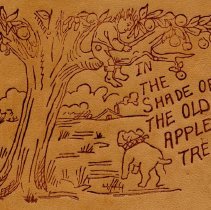 IN
THE
SHADE OF
THE OLD
APPLE
TREE